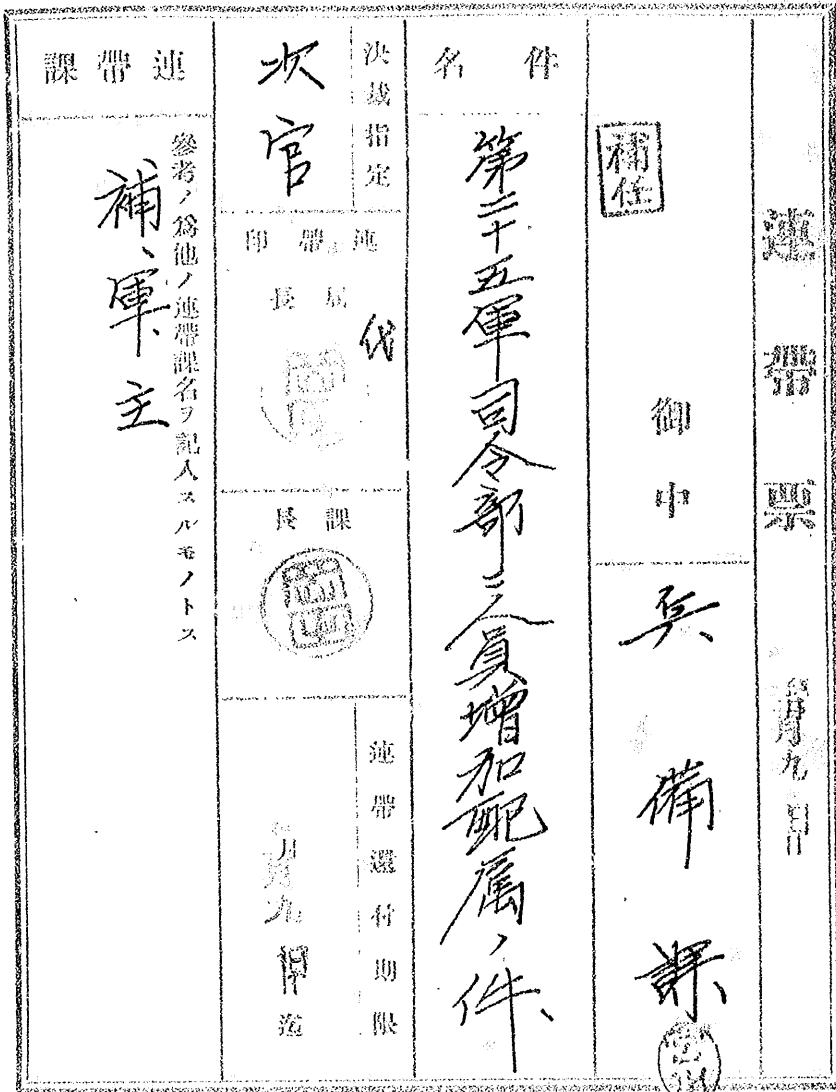 連帶票
月九日
補任
御中
兵備課
件名
第二十五軍司令部ニ人員增加配属ノ件
決裁指定
次官
連帶印
局長
代
課長
連帶還付期限
月九日迄
連帶課
參考ノ爲他ノ連帶課名ヲ記入スルモノトス
補、軍、主